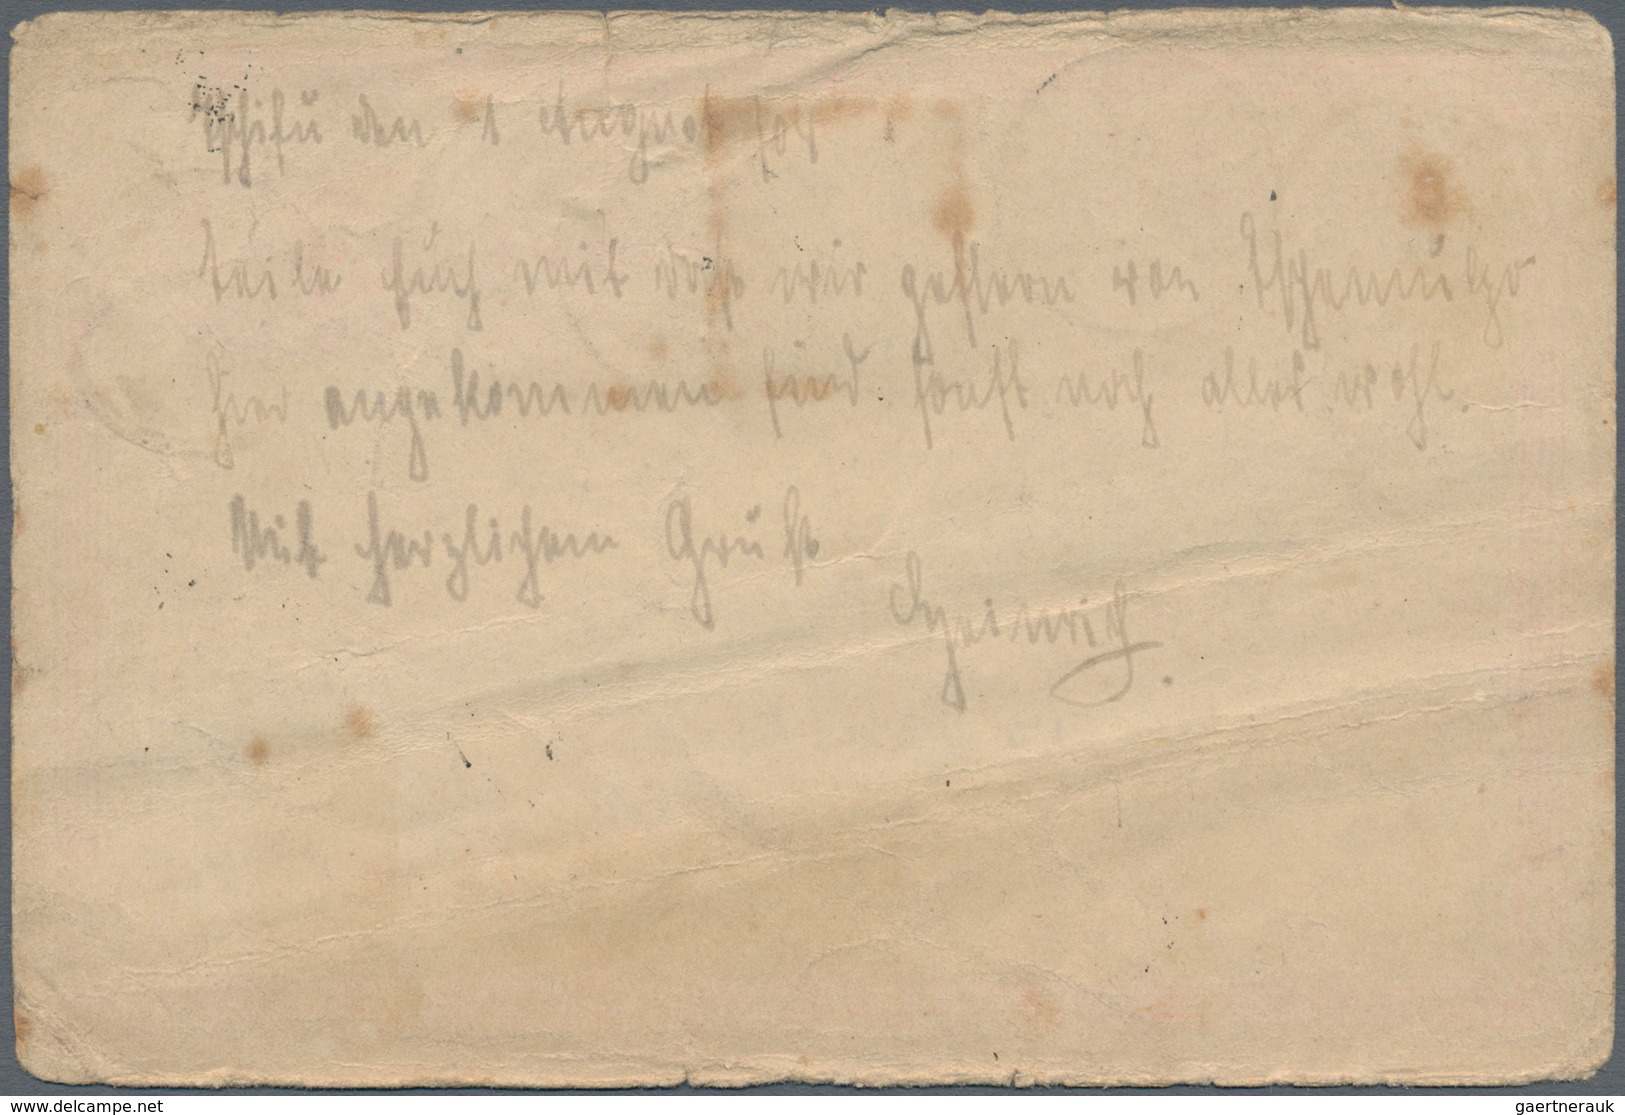 Tschifu den 1 August 04
teile Euch mit daß wir gestern von Tschemulpo
hier angekommen sind sonst noch alles wohl.
Mit herzlichem Gruß
Heinrich.
www.delcampe.net
gaertnerauk